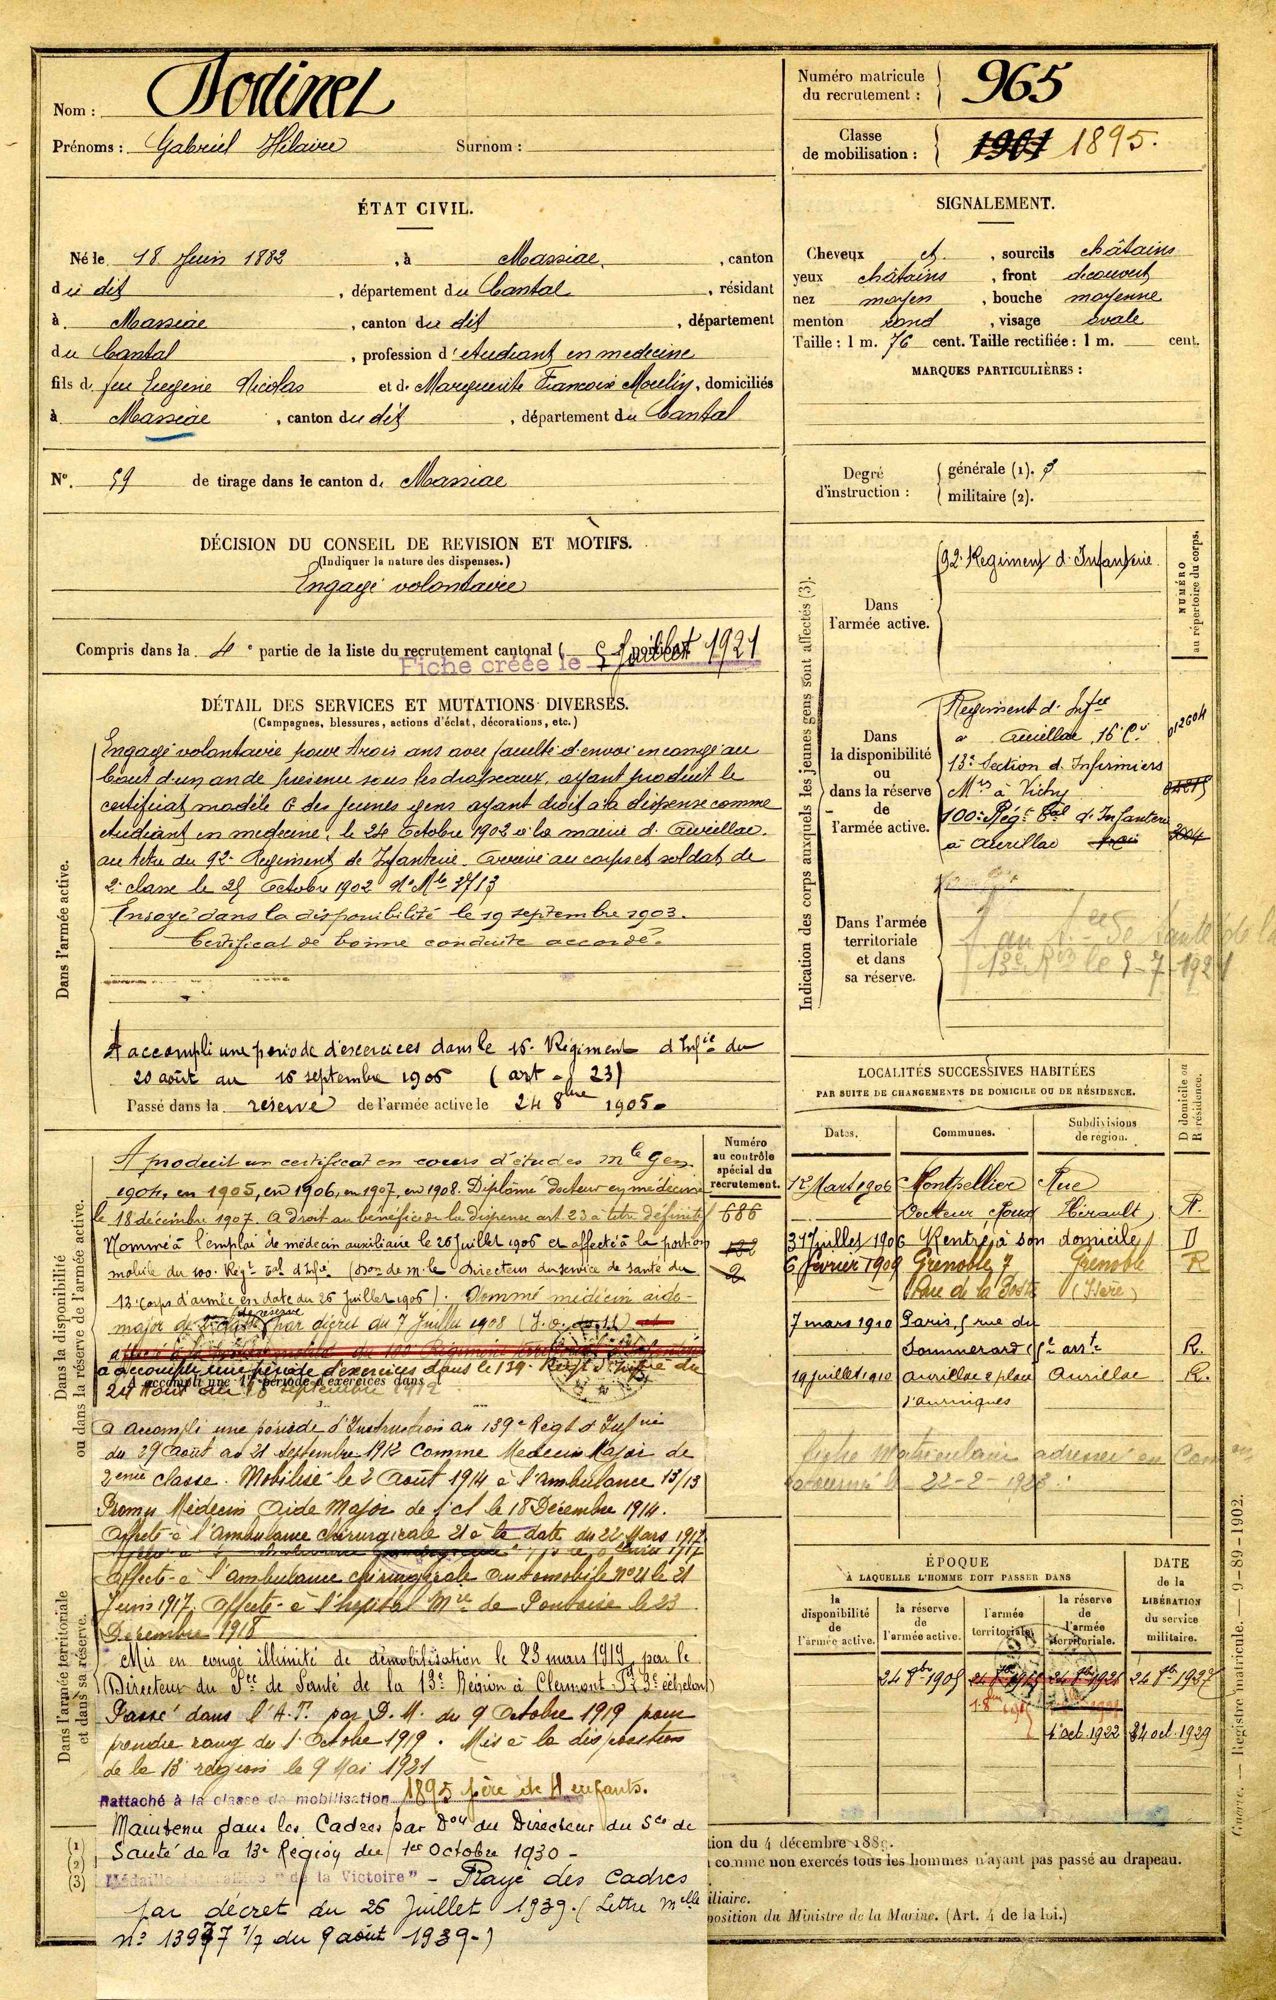 Nom : Dodinet
Prénoms : Gabriel Hilaire Surnom :
Numéro matricule du recrutement : 965
Classe de mobilisation : 1901 1895.
ÉTAT CIVIL.
Né le 18 Juin 1882, à Massiac, canton
du dit, département du Cantal, résidant
à Massiac, canton du dit, département
du Cantal, profession d'étudiant en medecine
fils de feu Eugene Nicolas et de Marguerite Françoise Moulin, domiciliés
à Massiac, canton du dit, département du Cantal
N° 59 de tirage dans le canton de Massiac
DÉCISION DU CONSEIL DE REVISION ET MOTIFS.
(Indiquer la nature des dispenses.)
Engagé volontaire
Compris dans la 4e partie de la liste du recrutement cantonal (
Fiche créée le 5 Juillet 1921
DÉTAIL DES SERVICES ET MUTATIONS DIVERSES.
(Campagnes, blessures, actions d'éclat, décorations, etc.)
Dans l'armée active.
Engagé volontaire pour trois ans avec faculté d'envoi en congé au
bout d'un an de présence sous les drapeaux, ayant produit le
certificat modèle G des jeunes gens ayant droit à la dispense comme
étudiant en medecine, le 24 Octobre 1902 à la mairie d'Aurillac.
au titre du 92e Regiment de Infanterie. Arrivé au corps et soldat de
2e classe le 25 Octobre 1902 No Mle 3713
Envoyé dans la disponibilité le 19 septembre 1903.
Certificat de bonne conduite accordé.
A accompli une période d'exercices dans le 16e Régiment d'Infie du
20 août au 16 septembre 1906 (art. 23)
Passé dans la réserve de l'armée active le 24 8bre 1905.
Dans la disponibilité ou dans la réserve de l'armée active.
Numéro au contrôle spécial du recrutement.
686
132
2
A produit un certificat en cours d'études mle G en
1904, en 1905, en 1906, en 1907, en 1908. Diplômé docteur en médecine
le 18 décembre 1907. A droit au bénéfice de la dispense art. 23 à titre définitif
Nommé à l'emploi de médecin auxiliaire le 26 Juillet 1906 et affecté à la portion
mobile du 100e Regt Tal d'Infie (Don de m. le Directeur du service de santé du
13e Corps d'armée en date du 26 Juillet 1906). Nommé médecin aide-
major de 2e classe de réserve par décret du 7 Juillet 1908
a accompli une période d'exercices dans le 139e Regt d'Infie du
24 Août au 18 septembre 1912
A accompli une 1re période d'exercices dans
a accompli une période d'Instruction au 139e Regt d'Infrie
du 29 Août au 21 septembre 1912 comme Medecin Major de
2eme classe. Mobilisé le 2 Août 1914 à l'ambulance 13/13
Promu Médecin Aide Major de 1e cl le 18 Décembre 1914.
Affecté à l'ambulance chirurgicale 21 à la date du 22 Mars 1917
Affecté à l'ambulance chirurgicale automobile no 21 le 21
Juin 1917. Affecté à l'hopital Mre de Pontoise le 23
Décembre 1918
Dans l'armée territoriale et dans sa réserve.
Mis en congé illimité de démobilisation le 23 mars 1919 par le
Directeur du Sce de Santé de la 13e Région à Clermont Fd 3e échelon)
Passé dans l'A.T. par D.M. du 9 Octobre 1919 pour
prendre rang du 1 Octobre 1919. Mis à la disposition
de la 13e région le 9 Mai 1921
Rattaché à la classe de mobilisation 1895 père de 4 enfants.
Maintenu dans les Cadres par Don du Directeur du Sce de
Santé de la 13e Région du 1er Octobre 1930 -
Médaille "de la Victoire" - Rayé des cadres
par décret du 26 Juillet 1939. (Lettre Melle
no 13977 1/7 du 9 août 1939.)
(1)
(2)
(3)
SIGNALEMENT.
Cheveux et, sourcils châtains
yeux châtains, front découvert
nez moyen, bouche moyenne
menton rond, visage ovale
Taille : 1 m. 76 cent. Taille rectifiée : 1 m. cent.
MARQUES PARTICULIÈRES :
Degré d'instruction :
générale (1). 5
militaire (2).
Indication des corps auxquels les jeunes gens sont affectés (3).
NUMÉRO au répertoire du corps.
Dans l'armée active.
92e Regiment d'Infanterie.
Dans la disponibilité ou dans la réserve de l'armée active.
Regiment d'Infie
à Aurillac 16e Cie 012604
13e Section d'Infirmiers
Mres à Vichy
100e Régt Tal d'Infanterie
à Aurillac
Dans l'armée territoriale et dans sa réserve.
Santé de la
13e Ron le 9-7-1921
LOCALITÉS SUCCESSIVES HABITÉES
PAR SUITE DE CHANGEMENTS DE DOMICILE OU DE RÉSIDENCE.
Dates. Communes. Subdivisions de région. D domicile ou R résidence.
12 Mars 1906 Montpellier Rue
Docteur Roux Hérault R.
31 juillet 1906 Rentré à son domicile D
6 février 1909 Grenoble 7 Grenoble R
Rue de la Poste (Isère)
7 mars 1910 Paris, 5 rue du
Sommerard (5e arrt R.
19 juillet 1910 Aurillac place Aurillac R.
fiche Matriculaire adressée en
le 22-2-1923
ÉPOQUE
À LAQUELLE L'HOMME DOIT PASSER DANS
DATE de la LIBÉRATION du service militaire.
la disponibilité de l'armée active.
la réserve de l'armée active.
l'armée territoriale.
la réserve de l'armée territoriale.
24 8bre 1905 24 8bre 1927
1 oct. 1922 24 oct. 1929
tion du 4 décembre 1889.
comme non exercés tous les hommes n'ayant pas passé au drapeau.
iliaire.
position du Ministre de la Marine. (Art. 4 de la loi.)
Guerre. — Registre matricule. — 9-89-1902.